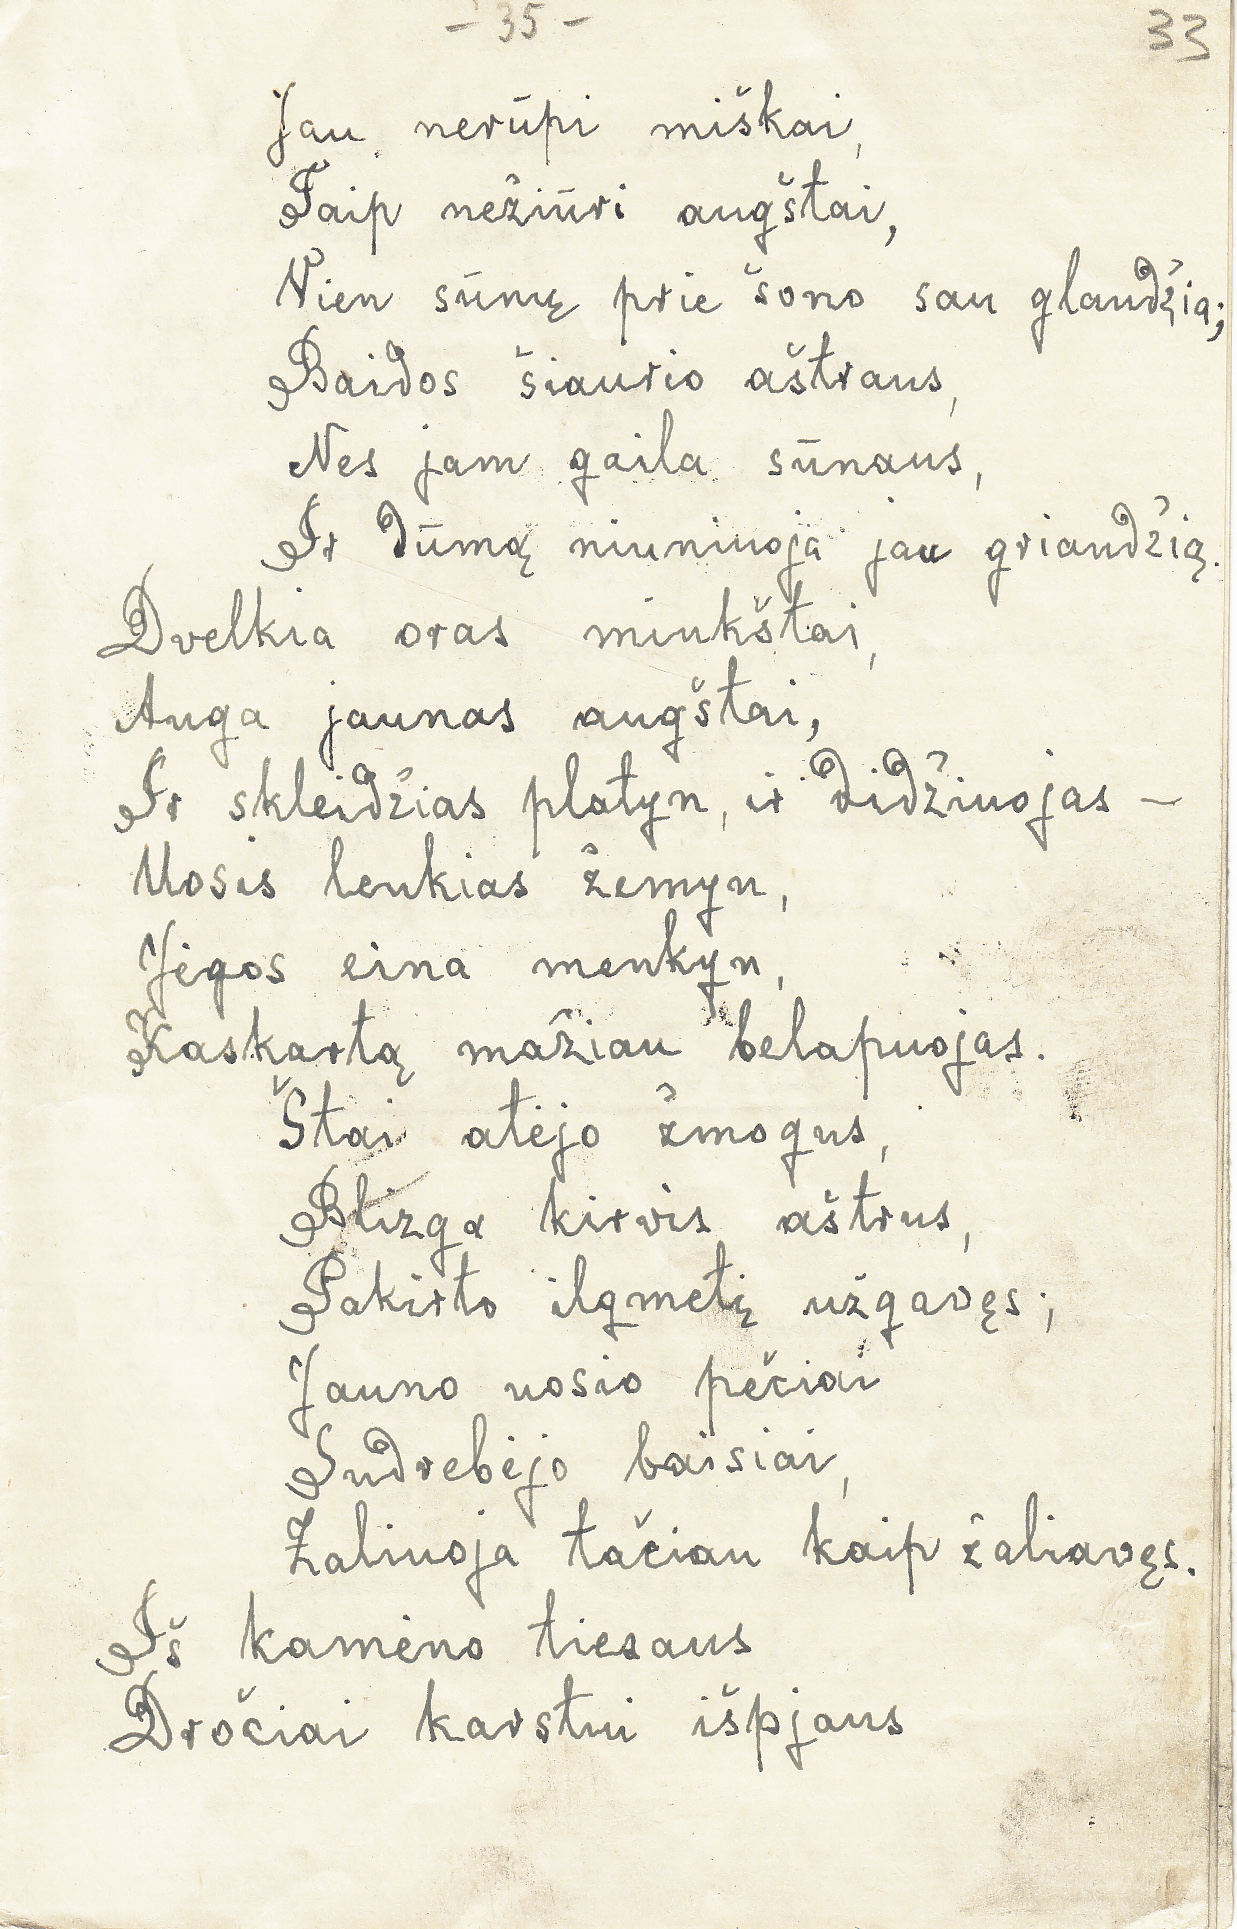 - 35 -
33
Jau nerūpi miškai,
Taip nežiūri augštai,
Vien sūnų prie šono sau glaudžia;
Baidos šiaurio aštraus,
Nes jam gaila sūnaus,
Ir dūmą niuniuoja jau griaudžią.
Dvelkia oras minkštai,
Auga jaunas augštai,
Ir skleidžias platyn, ir didžiuojas —
Uosis lenkias žemyn,
Jėgos eina menkyn,
Kaskartą mažiau belapuojas.
Štai atėjo žmogus,
Blizga kirvis aštrus,
Pakirto ilgmetį užgavęs;
Jauno uosio pečiai
Sudrebėjo baisiai,
Žaliuoja tačiau kaip žaliavęs.
Iš kamėno tiesaus
Dročiai karstui išpjaus